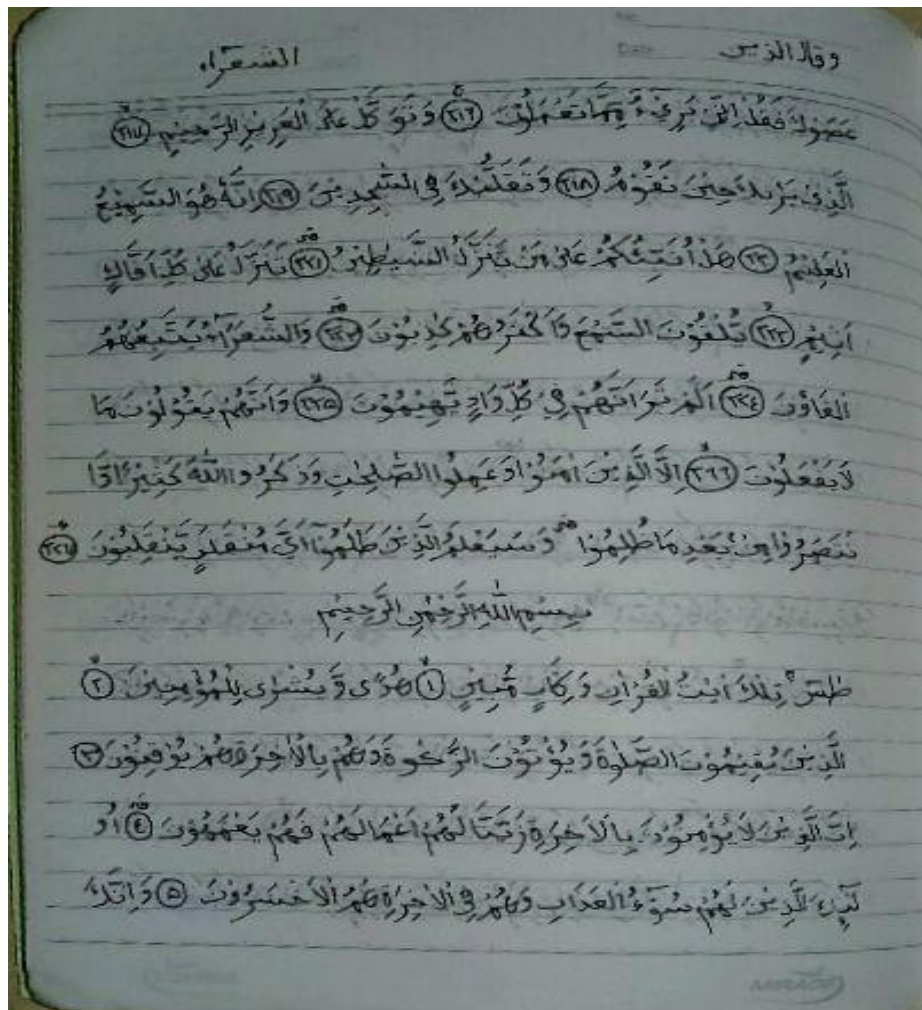 وقال الذين الشعراء
Date
عصوك فقل انى برىء مما تعملون ٢١٦ وتوكل على العزيز الرحيم ٢١٧
الذى يرىك حين تقوم ٢١٨ وتقلبك فى السجدين ٢١٩ انه هو السميع
العليم ٢٢٠ هل انبئكم على من تنزل الشيطين ٢٢١ تنزل على كل افاك
اثيم ٢٢٢ يلقون السمع واكثرهم كذبون ٢٢٣ والشعراء يتبعهم
الغاون ٢٢٤ الم تر انهم فى كل واد يهيمون ٢٢٥ وانهم يقولون ما
لا يفعلون ٢٢٦ الا الذين امنوا وعملوا الصلحت وذكروا الله كثيرا وا
نتصروا من بعد ما ظلموا وسيعلم الذين ظلموا اى منقلب ينقلبون ٢٢٧
بسم الله الرحمن الرحيم
طس تلك ايت القران وكتاب مبين ١ هدى وبشرى للمؤمنين ٢
الذين يقيمون الصلوة ويؤتون الزكوة وهم بالاخرة هم يوقنون ٣
ان الذين لا يؤمنون بالاخرة زينا لهم اعمالهم فهم يعمهون ٤ او
لىك الذين لهم سوء العذاب وهم فى الاخرة هم الاخسرون ٥ وانك